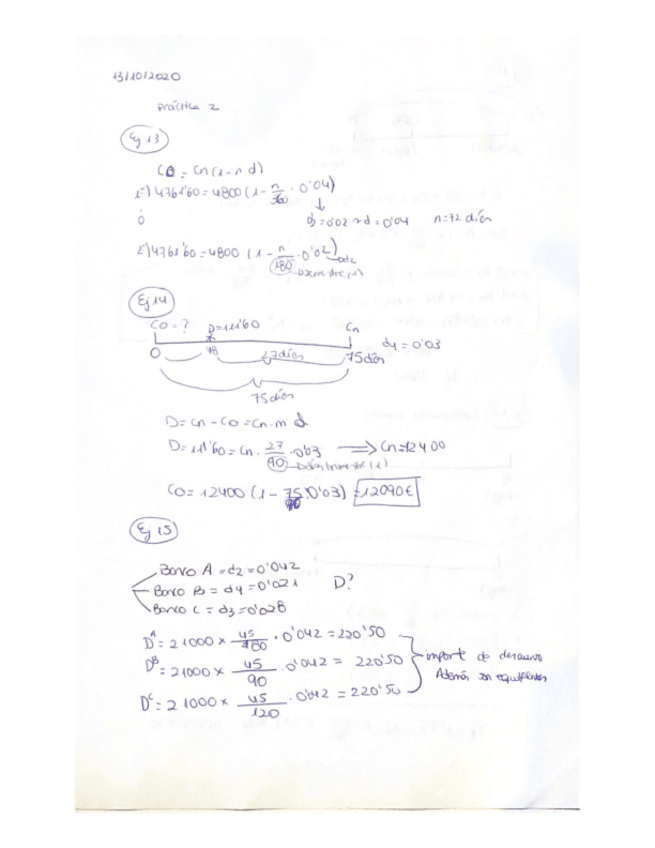 13/10/2020
Práctica 2
Ej 13
C0 = Cn (1 - n d)
1º) 4761'60 = 4800 (1 - n/360 · 0'04)
d2 = 0'02 → d = 0'04 n = 72 días
ó
2º) 4761'60 = 4800 (1 - n/180 · 0'02)
d2
semestre (1)
Ej 14
C0 = ? D = 111'60 Cn
d4 = 0'03
0 48 27 días 75 días
75 días
D = Cn - C0 = Cn · n · d
D = 111'60 = Cn · 27/90 · 0'03 ⟹ Cn = 12400
Días trimestre (1)
C0 = 12400 (1 - 75/90 · 0'03) = 12090€
Ej 15
Banco A = d2 = 0'042
Banco B = d4 = 0'021 D?
Banco C = d3 = 0'028
D^A = 21000 × 45/180 · 0'042 = 220'50
D^B = 21000 × 45/90 · 0'042 = 220'50 importe de descuento
Además son equivalentes
D^C = 21000 × 45/120 · 0'042 = 220'50